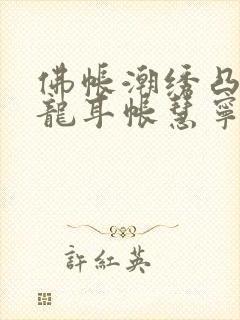 佛帳潮绣凸
龍耳帳慧寧
許紅英